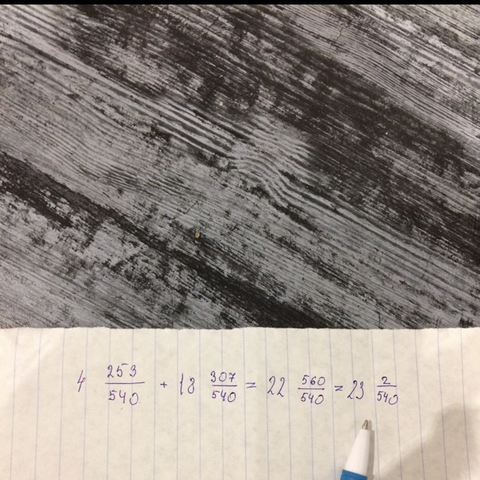 4 253/540 + 18 307/540 = 22 560/540 = 23 2/540